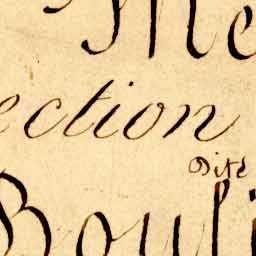 Me
ection
Dite
Bouli